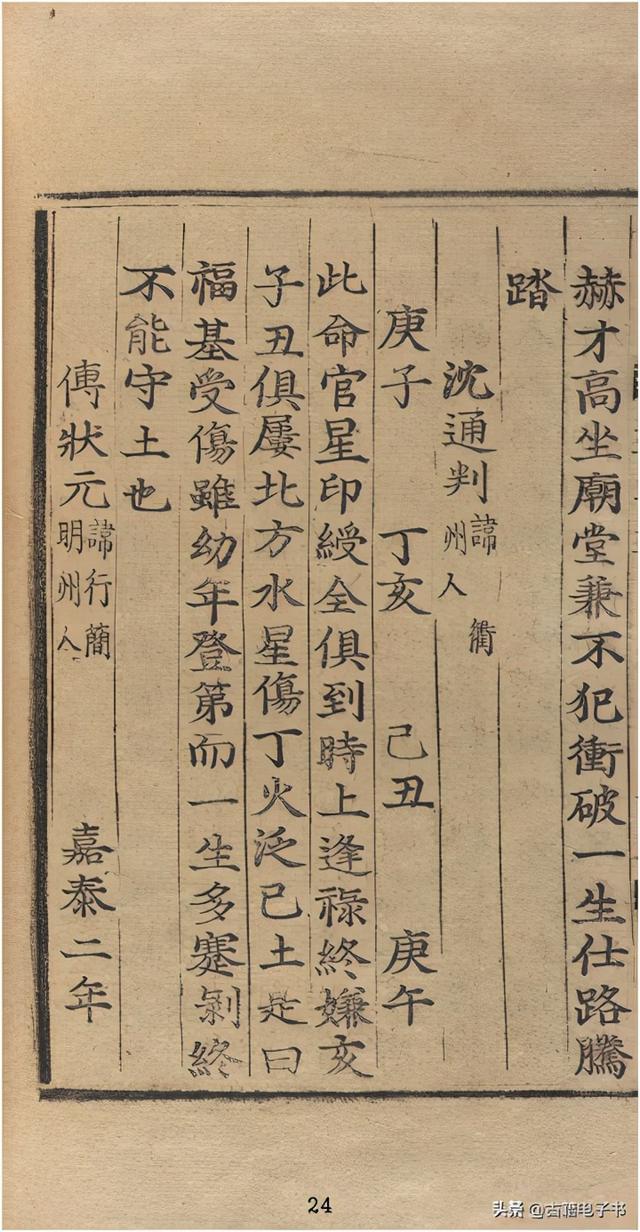 赫才高坐廟堂兼不犯衝破一生仕路騰
踏
沈通判諱 衢州人
庚子 丁亥 己丑 庚午
此命官星印綬全俱到時上逢祿終嫌亥
子丑俱屬北方水星傷丁火泛己土是曰
福基受傷雖幼年登第而一生多蹇剝終
不能守土也
傅狀元諱行簡明州人 嘉泰二年
24
头条 @古籍电子书